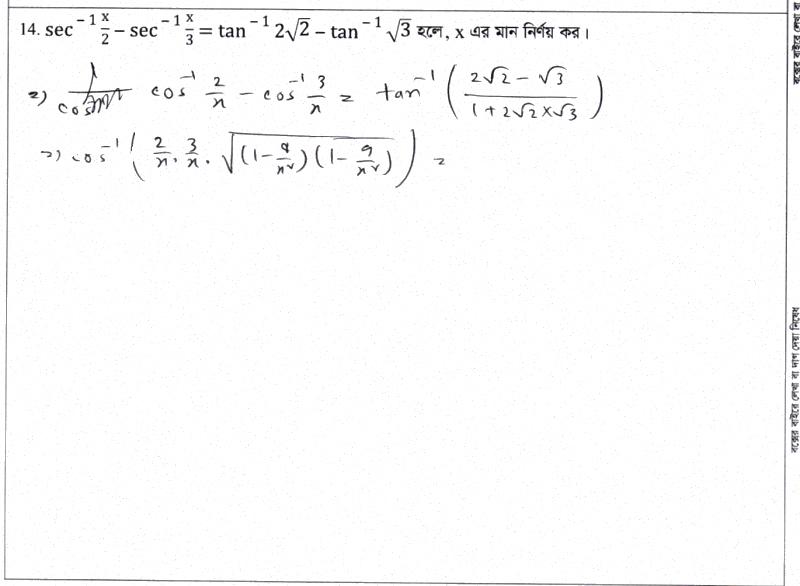 14. sec⁻¹ x/2 − sec⁻¹ x/3 = tan⁻¹ 2√2 − tan⁻¹ √3 হলে, x এর মান নির্ণয় কর।
=) cos⁻¹ 2/x − cos⁻¹ 3/x = tan⁻¹ ( (2√2 − √3) / (1 + 2√2 × √3) )
=) cos⁻¹ ( 2/x . 3/x . √((1 − 4/x²)(1 − 9/x²)) ) =
বক্সের বাইরে লেখা বা দাগ দেয়া নিষেধ